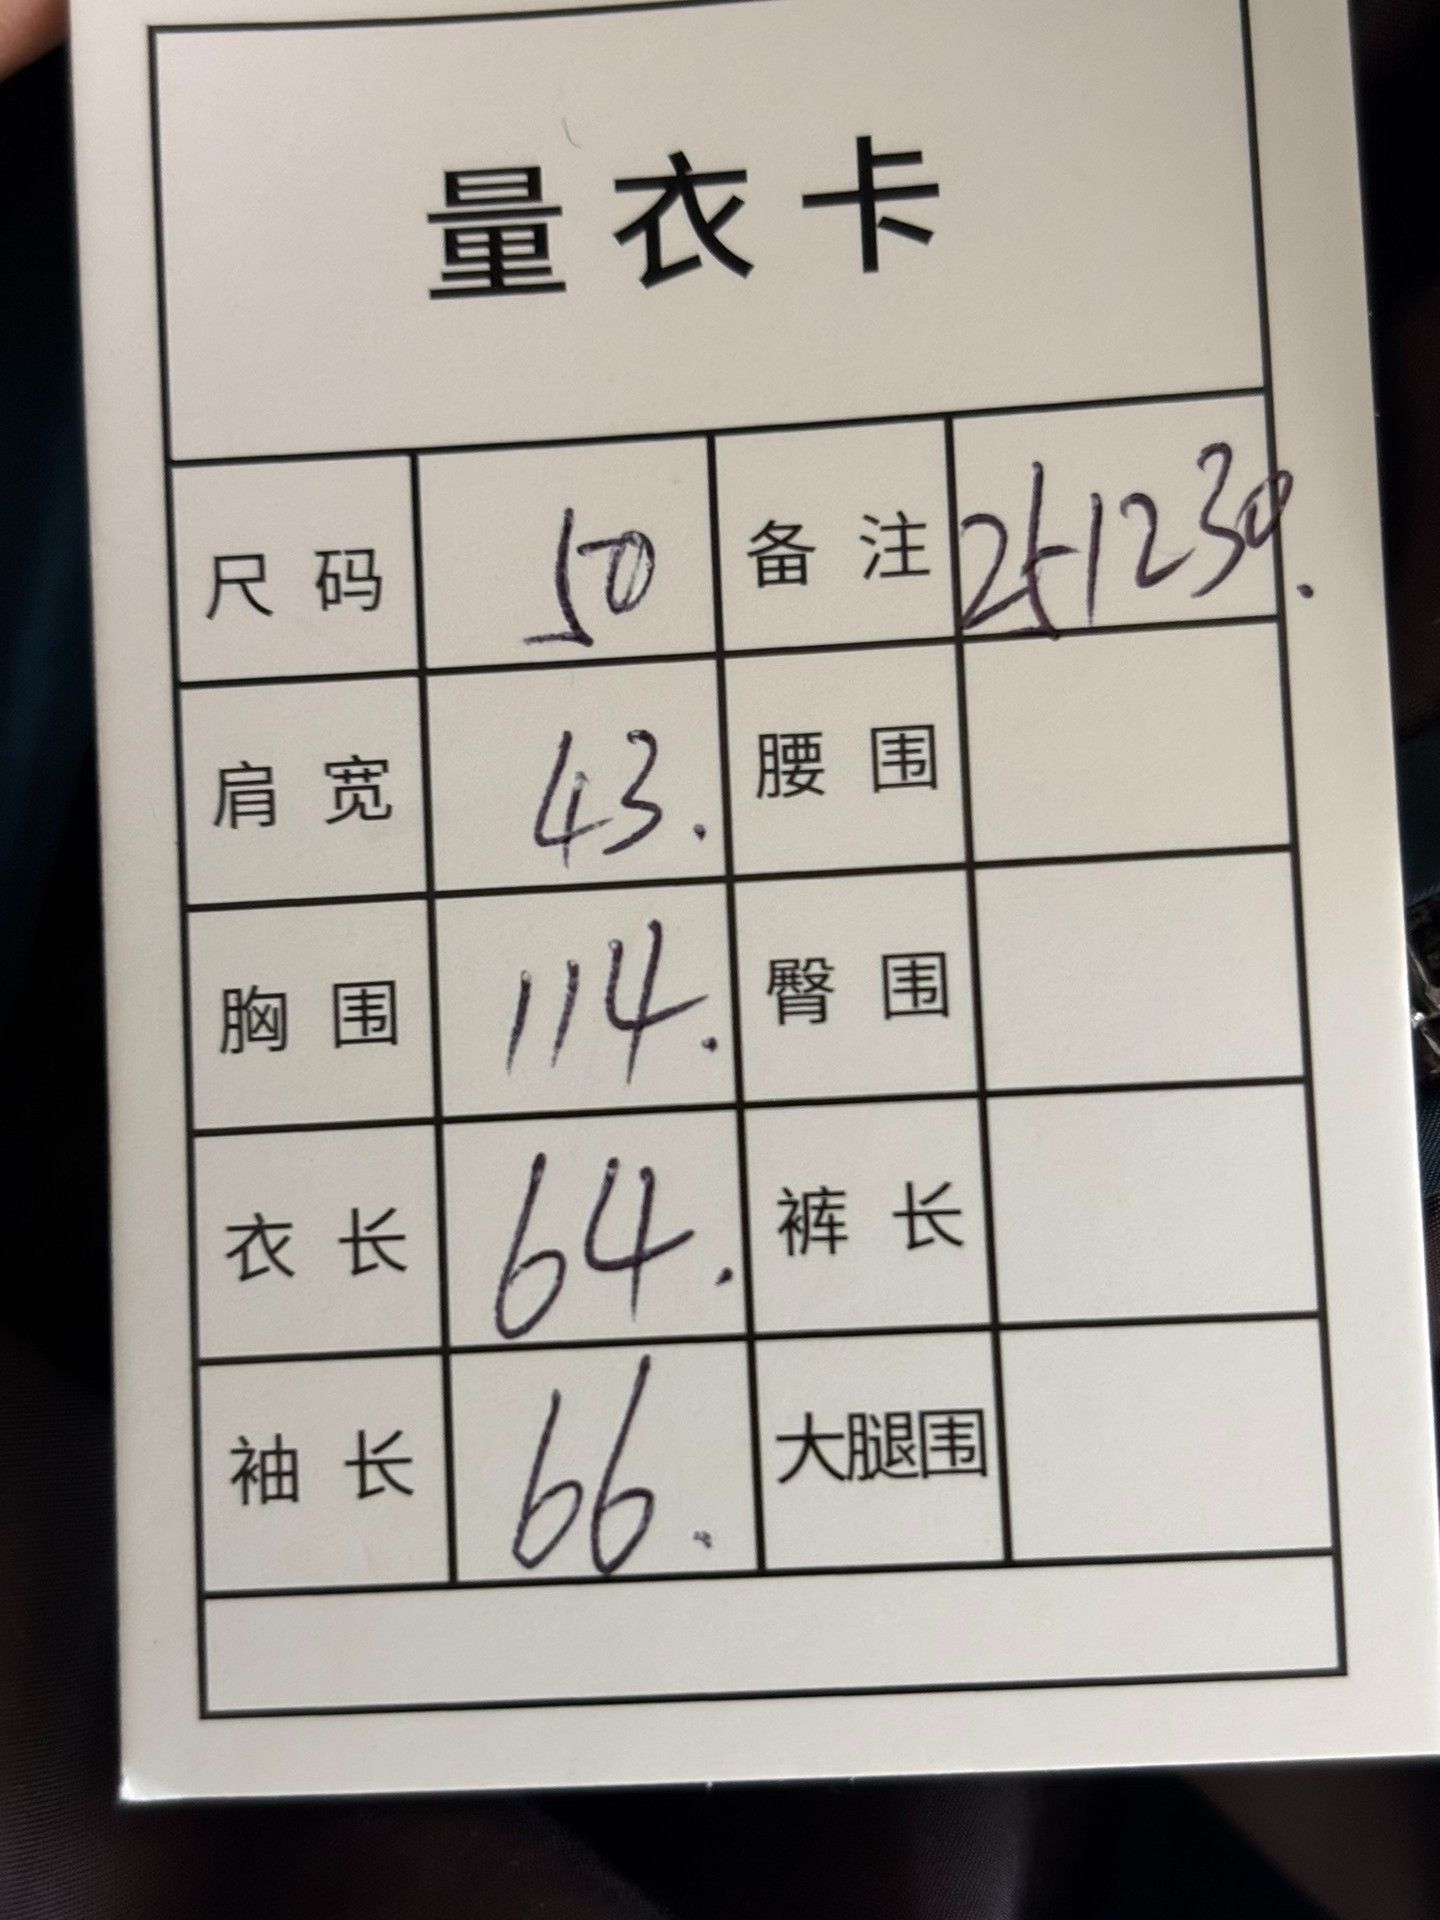 量衣卡
尺码 50 备注 251230.
肩宽 43. 腰围
胸围 114. 臀围
衣长 64. 裤长
袖长 66. 大腿围